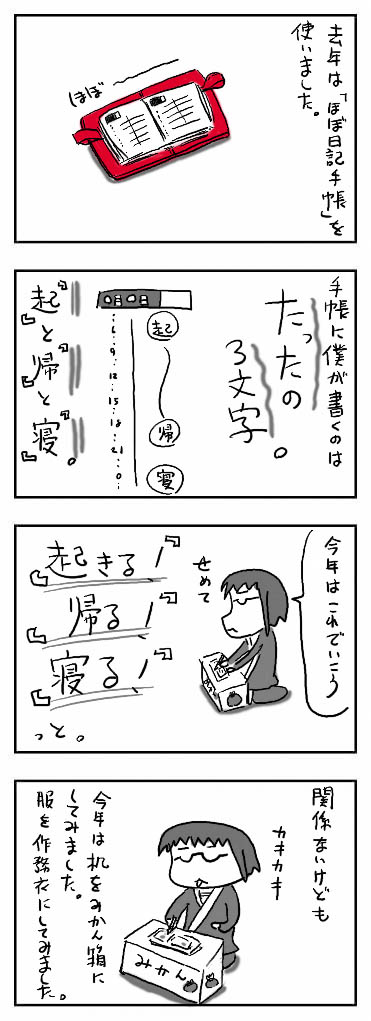 去年は「ほぼ日記手帳」を
使いました。
ほぼ
手帳に僕が書くのは
たったの
3文字。
起
帰
寝
6
9
12
15
18
21
0
『起』と『帰』と『寝』。
今年はこれでいこう
せめて
『起きる!』
『帰る!』
『寝る!』
っと。
関係ないけども
カキカキ
みかん
今年は机をみかん箱に
してみました。
服を作務衣にしてみました。